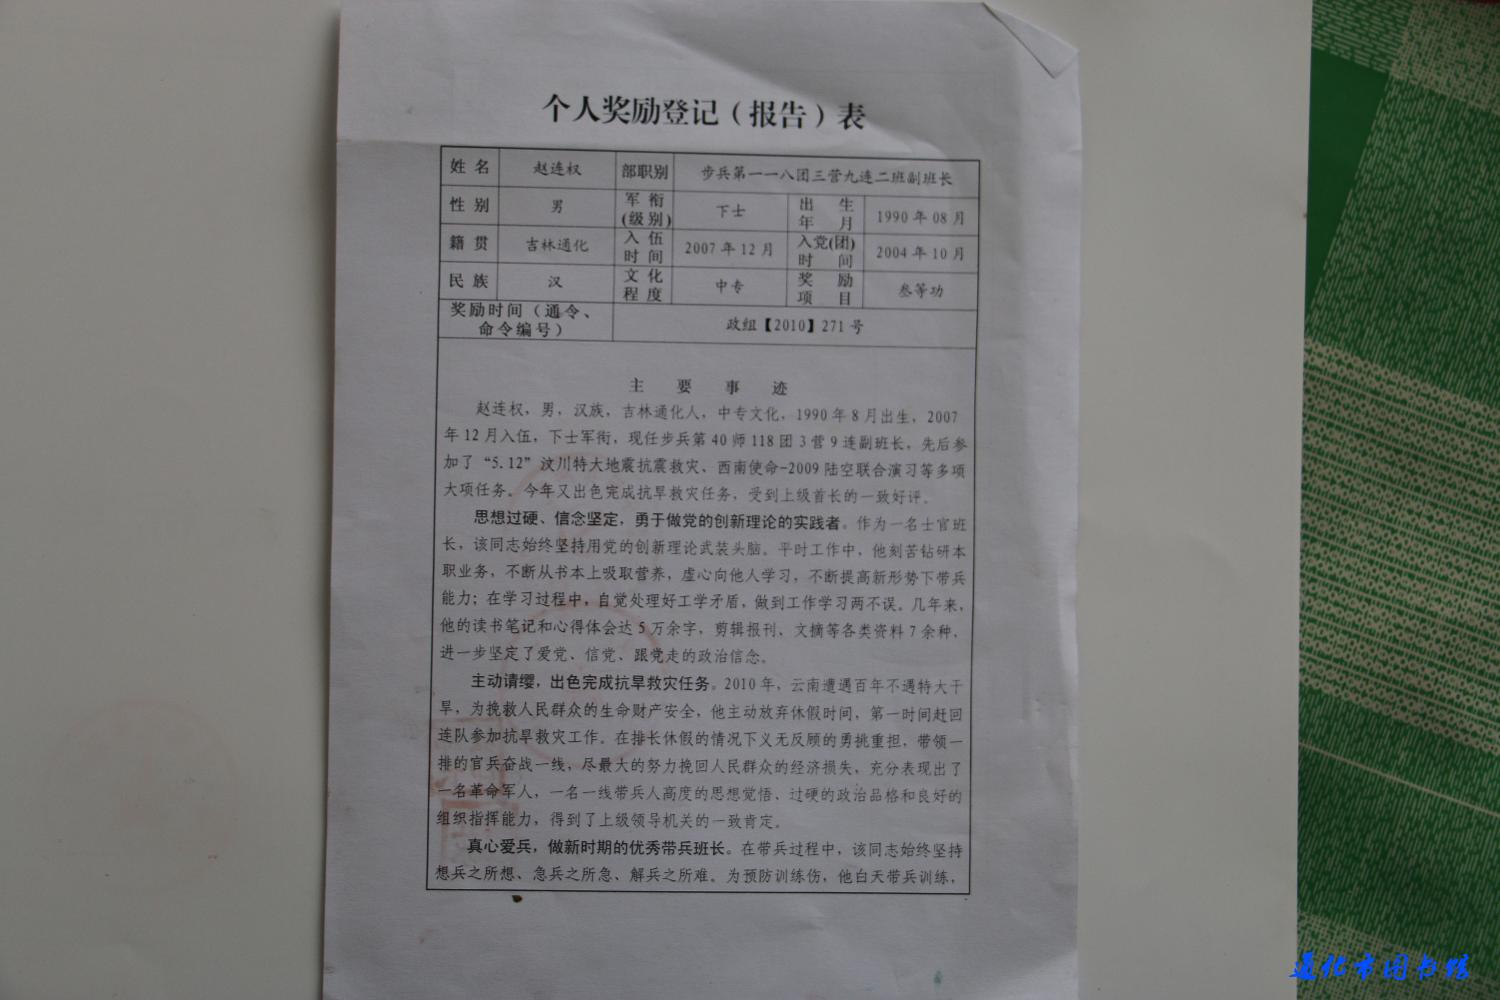 个人奖励登记（报告）表
姓 名 赵连权 部职别 步兵第一一八团三营九连二班副班长
性 别 男 军 衔 (级别) 下士 出 生 年 月 1990 年 08 月
籍 贯 吉林通化 入 伍 时 间 2007 年 12 月 入党(团) 时 间 2004 年 10 月
民 族 汉 文 化 程 度 中专 奖 励 项 目 叁等功
奖励时间（通令、
命令编号） 政组【2010】271 号
主 要 事 迹
赵连权，男，汉族，吉林通化人，中专文化，1990 年 8 月出生，2007
年 12 月入伍，下士军衔，现任步兵第 40 师 118 团 3 营 9 连副班长，先后参
加了“5.12”汶川特大地震抗震救灾、西南使命-2009 陆空联合演习等多项
大项任务。今年又出色完成抗旱救灾任务，受到上级首长的一致好评。
思想过硬、信念坚定，勇于做党的创新理论的实践者。作为一名士官班
长，该同志始终坚持用党的创新理论武装头脑。平时工作中，他刻苦钻研本
职业务，不断从书本上吸取营养，虚心向他人学习，不断提高新形势下带兵
能力；在学习过程中，自觉处理好工学矛盾，做到工作学习两不误。几年来，
他的读书笔记和心得体会达 5 万余字，剪辑报刊、文摘等各类资料 7 余种，
进一步坚定了爱党、信党、跟党走的政治信念。
主动请缨，出色完成抗旱救灾任务。2010 年，云南遭遇百年不遇特大干
旱，为挽救人民群众的生命财产安全，他主动放弃休假时间，第一时间赶回
连队参加抗旱救灾工作。在排长休假的情况下义无反顾的勇挑重担，带领一
排的官兵奋战一线，尽最大的努力挽回人民群众的经济损失，充分表现出了
一名革命军人，一名一线带兵人高度的思想觉悟、过硬的政治品格和良好的
组织指挥能力，得到了上级领导机关的一致肯定。
真心爱兵，做新时期的优秀带兵班长。在带兵过程中，该同志始终坚持
想兵之所想、急兵之所急、解兵之所难。为预防训练伤，他白天带兵训练，
通化市图书馆